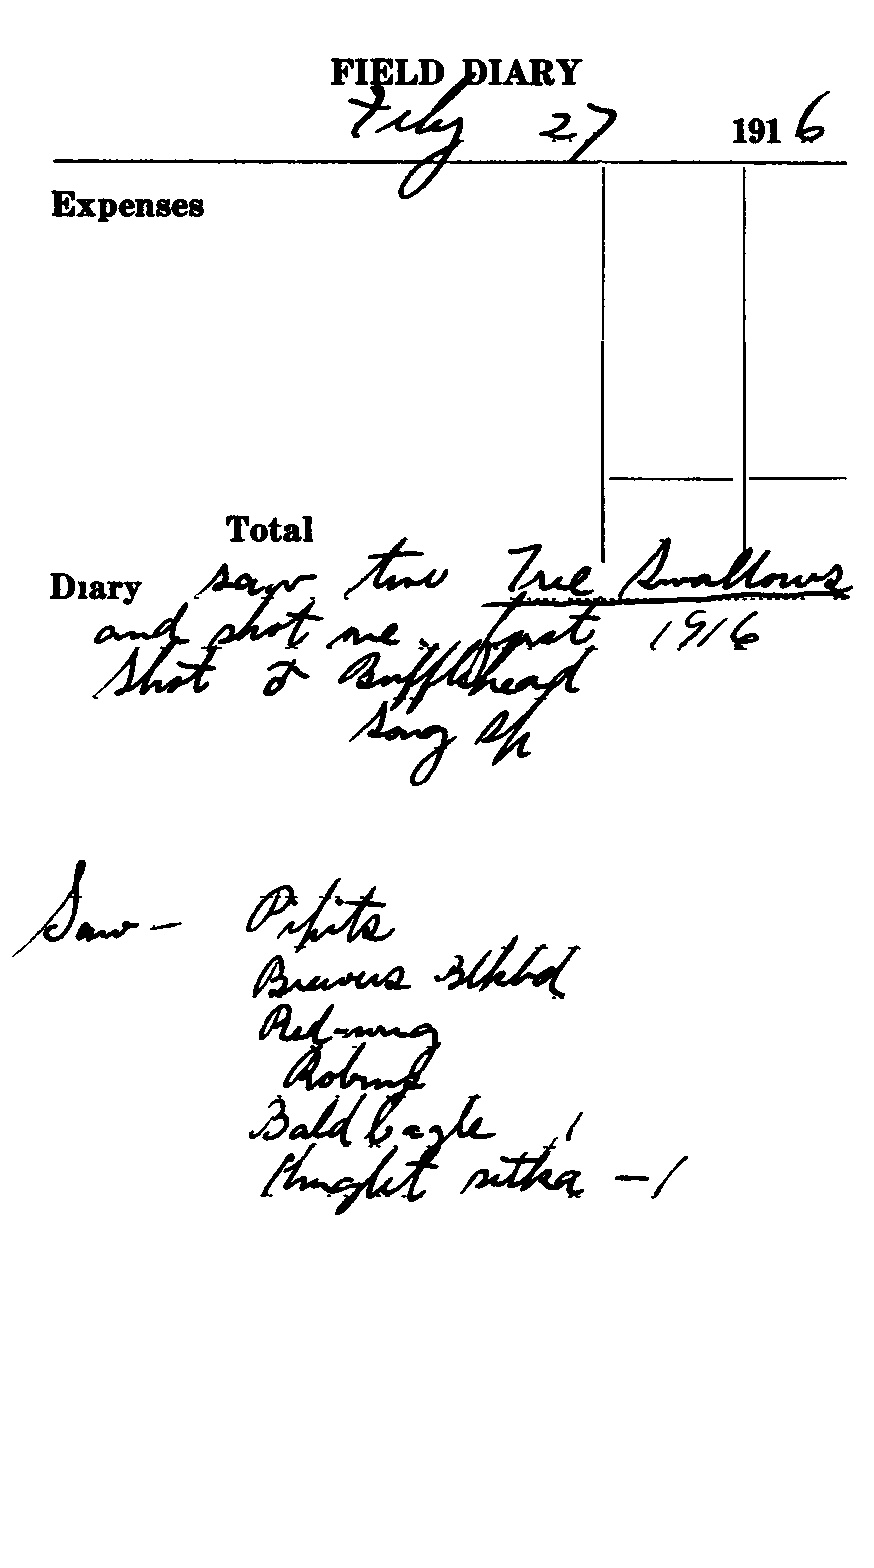 FIELD DIARY
Feby 27 1916
Expenses
Total
Diary saw two Tree Swallows
and shot one. first 1916
Shot 2 Bufflehead
Song Sp
Saw - Pipits
Brewers Blkbd
Red-wing
Robins
Bald Eagle 1
sitka - 1